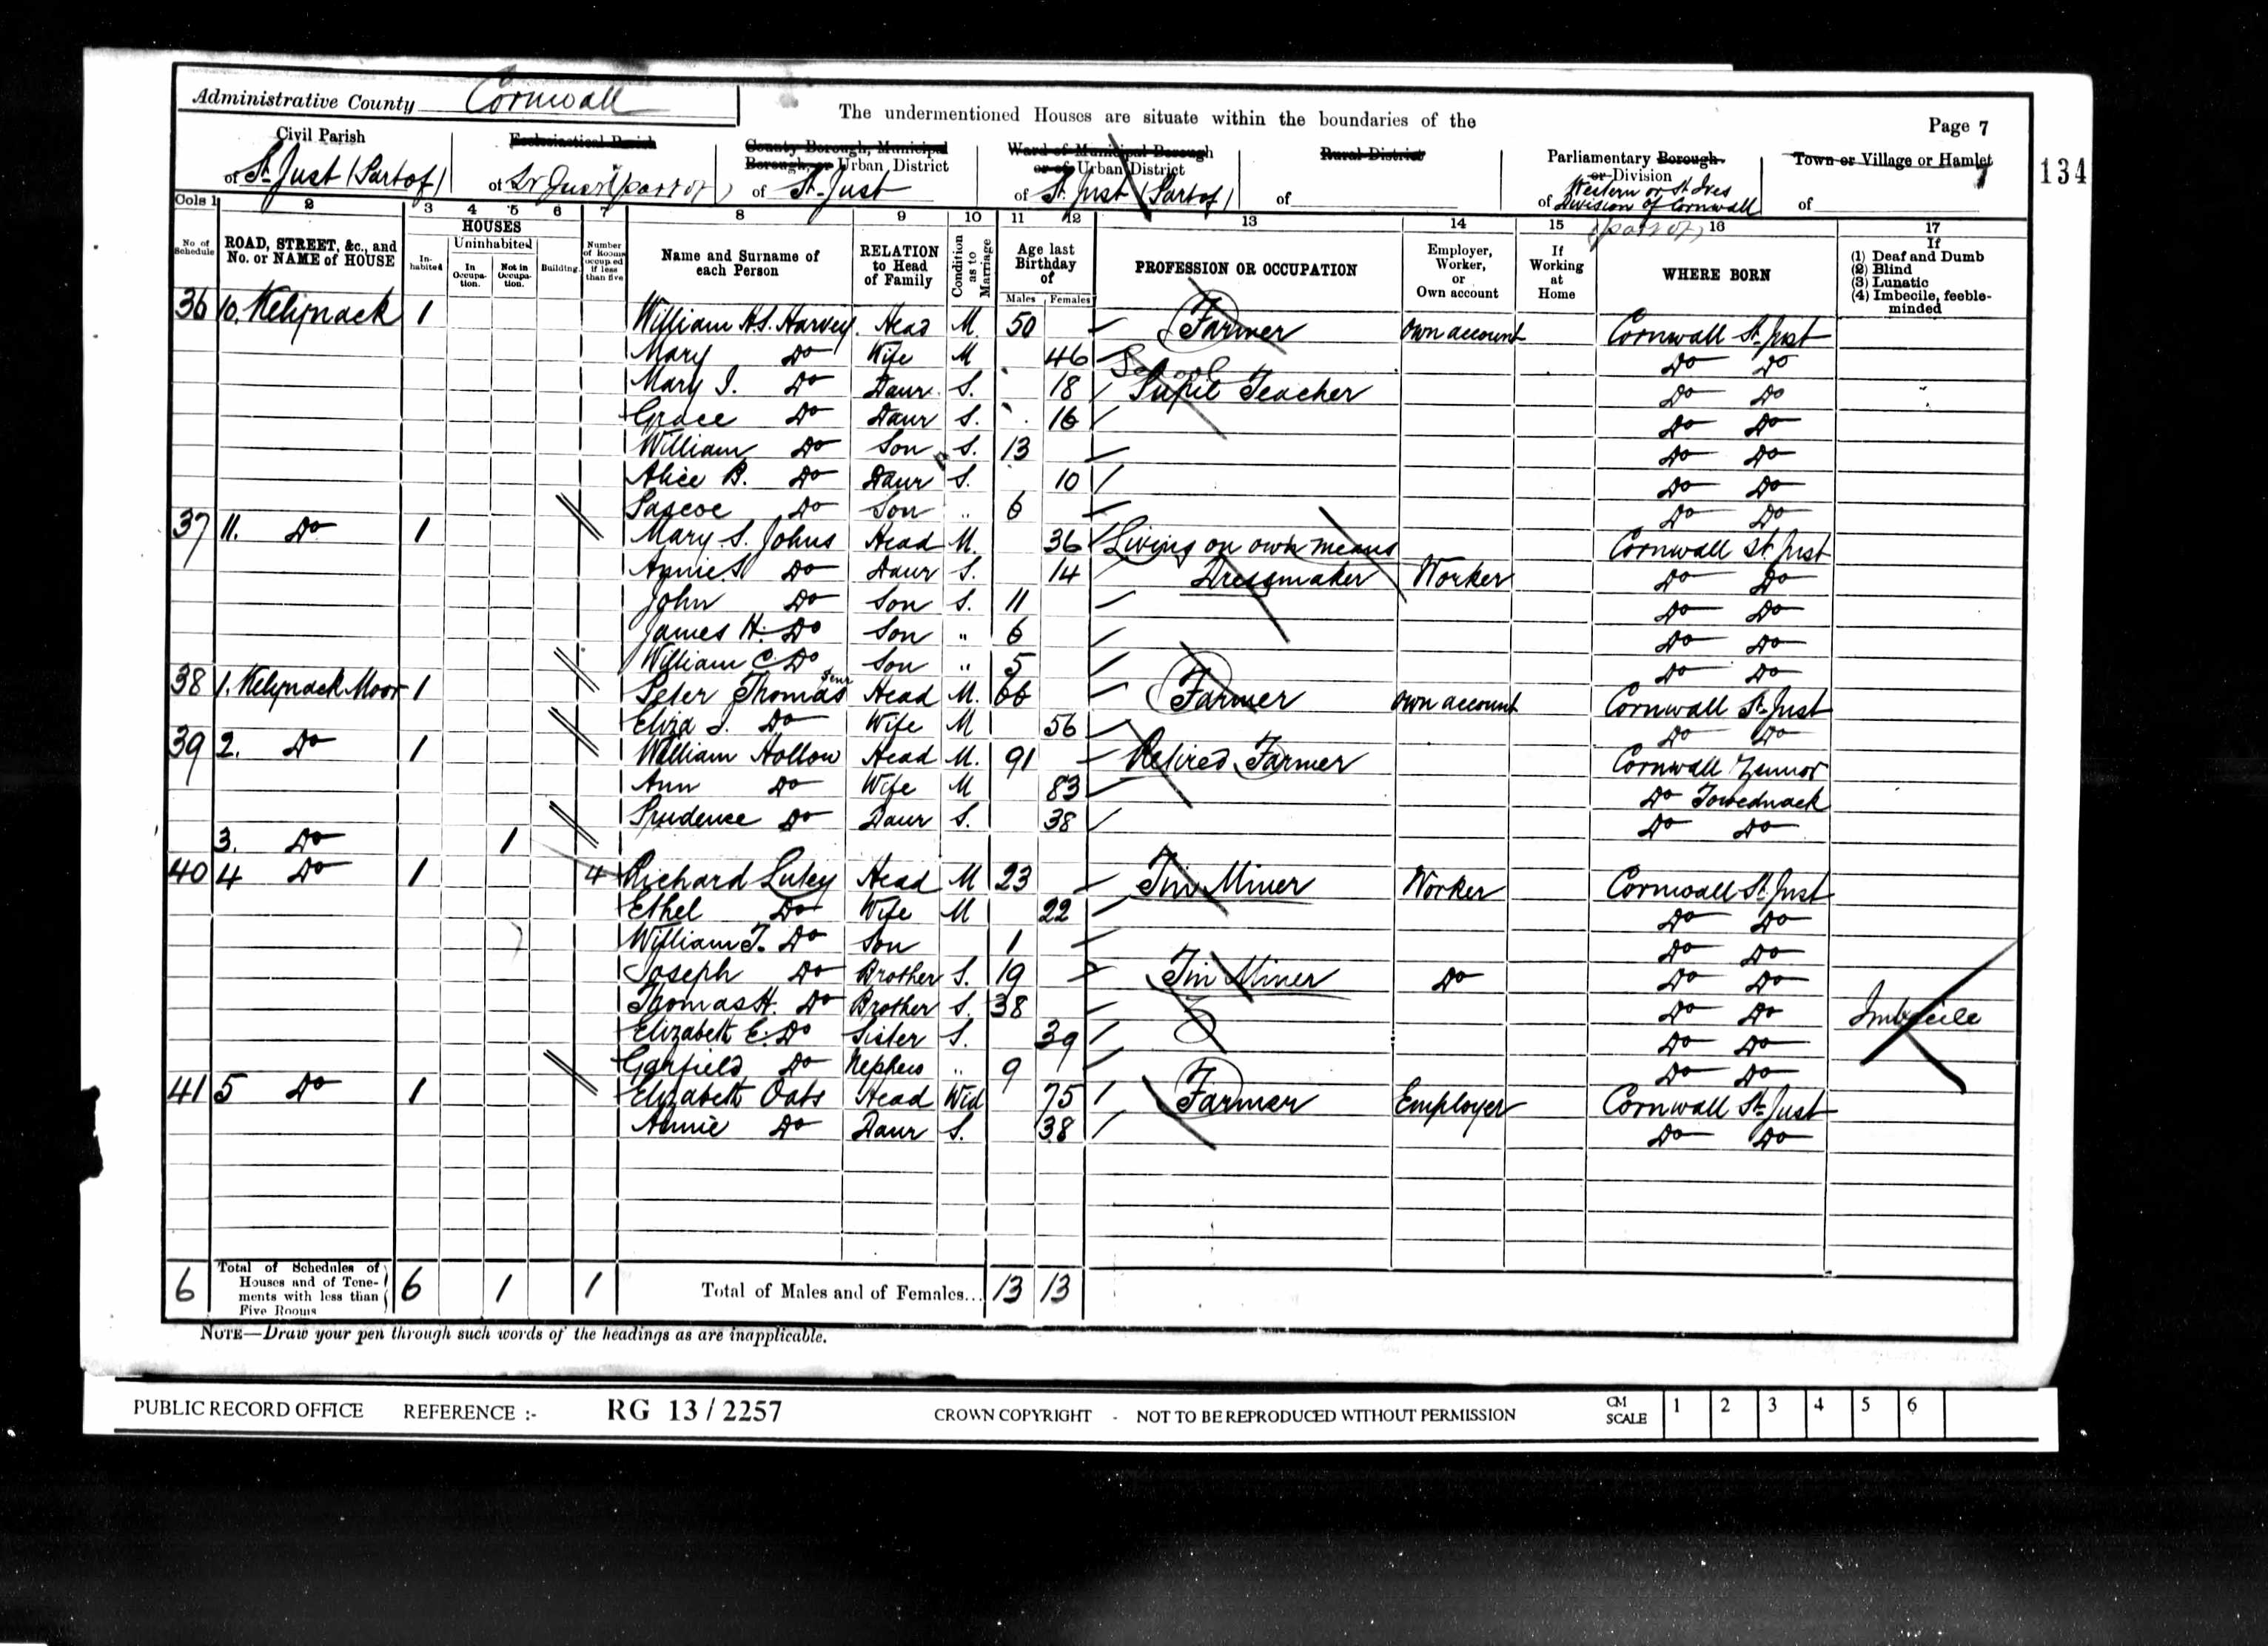 Administrative County Cornwall
The undermentioned Houses are situate within the boundaries of the
Page 7
134
Civil Parish of St. Just (Part of)
Ecclesiastical Parish of St Just (part of)
County Borough, Municipal Borough, or Urban District of St. Just
Ward of Municipal Borough or of Urban District of St Just (Part of)
Rural District of
Parliamentary Borough or Division of Western or St Ives Division of Cornwall (part of)
Town or Village or Hamlet of
Cols 1 2 3 4 5 6 7 8 9 10 11 12 13 14 15 16 17
No of Schedule
ROAD, STREET, &c., and No. or NAME of HOUSE
HOUSES
Inhabited
Uninhabited
In Occupation.
Not in Occupation.
Building.
Number of Rooms occupied if less than five
Name and Surname of each Person
RELATION to Head of Family
Condition as to Marriage
Age last Birthday of
Males Females
PROFESSION OR OCCUPATION
Employer, Worker, or Own account
If Working at Home
WHERE BORN
If (1) Deaf and Dumb (2) Blind (3) Lunatic (4) Imbecile, feeble-minded
36 10. Kelynack 1 William H.S. Harvey. Head M. 50 Farmer own account Cornwall St. Just
Mary Do Wife M 46 Do Do
School
Mary J. Do Daur S. 18 Pupil Teacher Do Do
Grace Do Daur S. 16 Do Do
William Do Son S. 13 Do Do
Alice B. Do Daur S. 10 Do Do
Pascoe Do Son " 6 Do Do
37 11. Do 1 Mary S. Johns Head M. 36 Living on own means Cornwall St. Just
Annie S Do Daur S. 14 Dressmaker Worker Do Do
John Do Son S. 11 Do Do
James H. Do Son " 6 Do Do
William C Do Son " 5 Do Do
38 1. Kelynack Moor 1 Peter Thomas Senr Head M. 66 Farmer own account Cornwall St. Just
Eliza J. Do Wife M 56 Do Do
39 2. Do 1 William Hollow Head M. 91 Retired Farmer Cornwall Zennor
Ann Do Wife M 83 Do Towednack
Prudence Do Daur S. 38 Do Do
3. Do 1
40 4 Do 1 4 Richard Lutey Head M 23 Tin Miner Worker Cornwall St. Just
Ethel Do Wife M 22 Do Do
William T. Do Son 1 Do Do
Joseph Do Brother S. 19 Tin Miner Do Do Do
Thomas H. Do Brother S. 38 Do Do Imbecile
Elizabeth E. Do Sister S. 39 Do Do
Garfield Do Nephew " 9 Do Do
41 5 Do 1 Elizabeth Oats Head Wid 75 Farmer Employer Cornwall St. Just
Annie Do Daur S. 38 Do Do
6 Total of Schedules of Houses and of Tenements with less than Five Rooms 6 1 1 Total of Males and of Females... 13 13
NOTE—Draw your pen through such words of the headings as are inapplicable.
PUBLIC RECORD OFFICE REFERENCE :- RG 13/2257 CROWN COPYRIGHT - NOT TO BE REPRODUCED WITHOUT PERMISSION CM SCALE 1 2 3 4 5 6